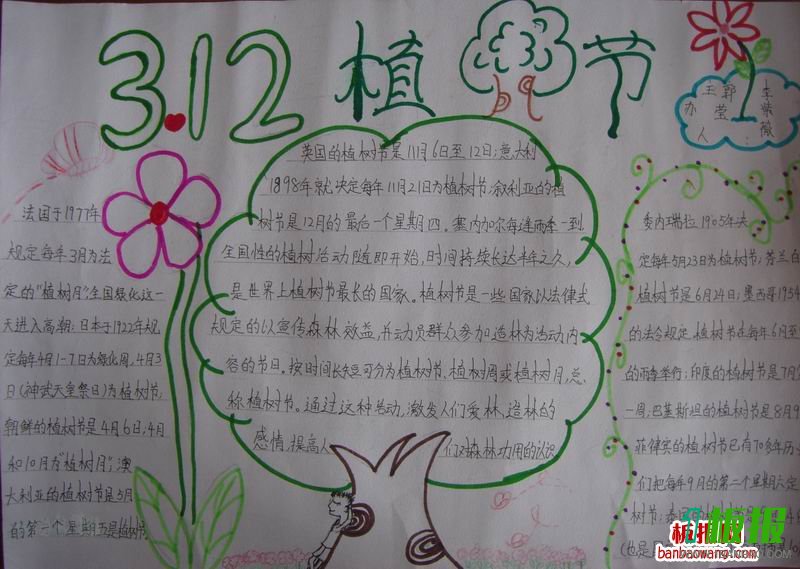 3.12 植 节
王郭 李紫薇
办 莹
人:
法国于1977年
规定每年3月为法
定的“植树月”,全国绿化这一
天进入高潮;日本于1922年规
定每年4月1-7日为绿化周,4月3
日(神武天皇祭日)为植树节,
朝鲜的植树节是4月6日;4月
和10月为“植树月”;澳
大利亚的植树节是5月
的第 个星期五是植树节
英国的植树节是11月6日至12日;意大利
1898年就决定每年11月21日为植树节;叙利亚的植
树节是12月的最后一个星期四。塞内加尔每逢雨季一到,
全国性的植树活动随即开始,时间持续长达半年之久,
是世界上植树节最长的国家。植树节是一些国家以法律式
规定的以宣传森林效益,并动员群众参加造林为活动内
容的节日。按时间长短可分为植树节、植树周或植树月,总
称植树节。通过这种活动,激发人们爱林、造林的
感情,提高人 们对森林功用的认识
委内瑞拉1905年决
定每年5月23日为植树节;芬兰白
植树节是6月24日;墨西哥1954
的法令规定,植树节在每年6月至
的雨季举行;印度的植树节是7月
一周;巴基斯坦的植树节是8月9
菲律宾的植树节已有70多年历
们把每年9月的第二个星期六定
树节;泰国的
(也是
板报
banbaowang.com